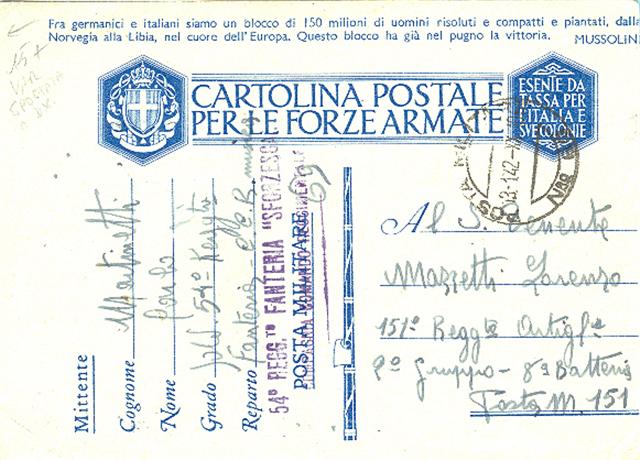 Fra germanici e italiani siamo un blocco di 150 milioni di uomini risoluti e compatti e piantati, dalla
Norvegia alla Libia, nel cuore dell'Europa. Questo blocco ha già nel pugno la vittoria. MUSSOLINI
15+
VAR
SPOSTATA
CARTOLINA POSTALE
PER LE FORZE ARMATE
ESENTE DA
TASSA PER
L'ITALIA E
SUE COLONIE
POSTA
Mittente
Cognome Martinetti
Nome Paolo
Grado
54° Regg.to
Reparto Fanteria
54° REGG.TO FANTERIA "SFORZESCA"
POSTA MILITARE 69
COMPAGNIA COMANDO REGGIMENTALE
Al S. Tenente
Mazzetti Lorenzo
151° Regg.to Artigl.e
2° Gruppo - 8a Batteria
Posta M. 151